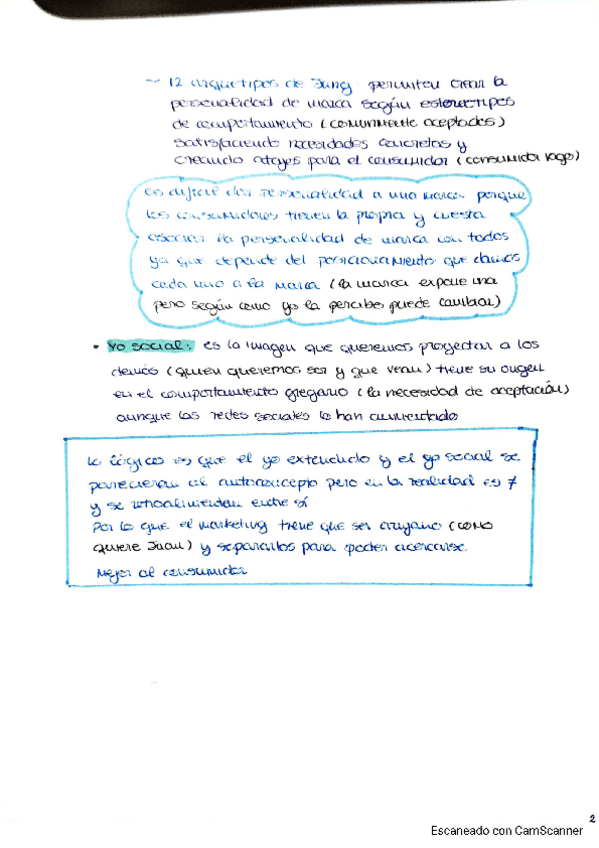 ~ 12 arquetipos de Jung permiten crear la
personalidad de marca según estereotipos
de comportamiento (comunmente aceptados)
satisfaciendo necesidades concretas y
creando atajos para el consumidor (consumidor vago)
Es difícil dar personalidad a una marca porque
los consumidores tienen la propia y cuesta
asociar la personalidad de marca con todos
ya que depende del posicionamiento que damos
cada uno a la marca (la marca expone una
pero según como yo la percibo puede cambiar)
• Yo social: es la imagen que queremos proyectar a los
demás (quien queremos ser y que vean) tiene su origen
en el comportamiento gregario (la necesidad de aceptación)
aunque las redes sociales lo han aumentado
Lo lógico es que el yo extendido y el yo social se
parecieran al autoconcepto pero en la realidad es ≠
y se retroalimentan entre sí
Por lo que el marketing tiene que ser cirujano (como
quiere Juan) y separarlos para poder acercarse
mejor al consumidor
2
Escaneado con CamScanner